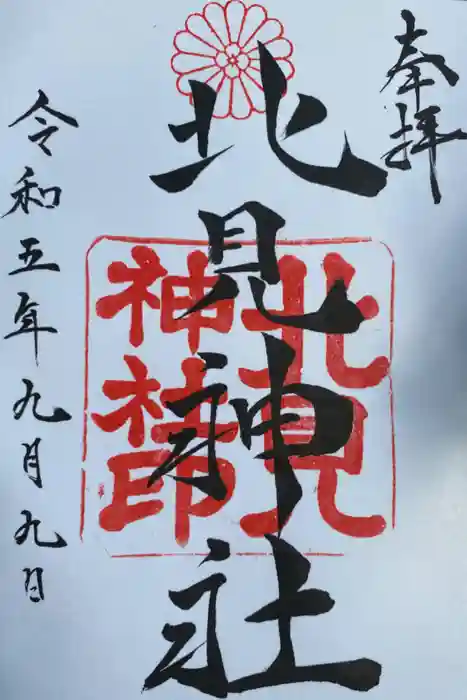 奉拝
北見神社
北見神社印
令和五年九月九日